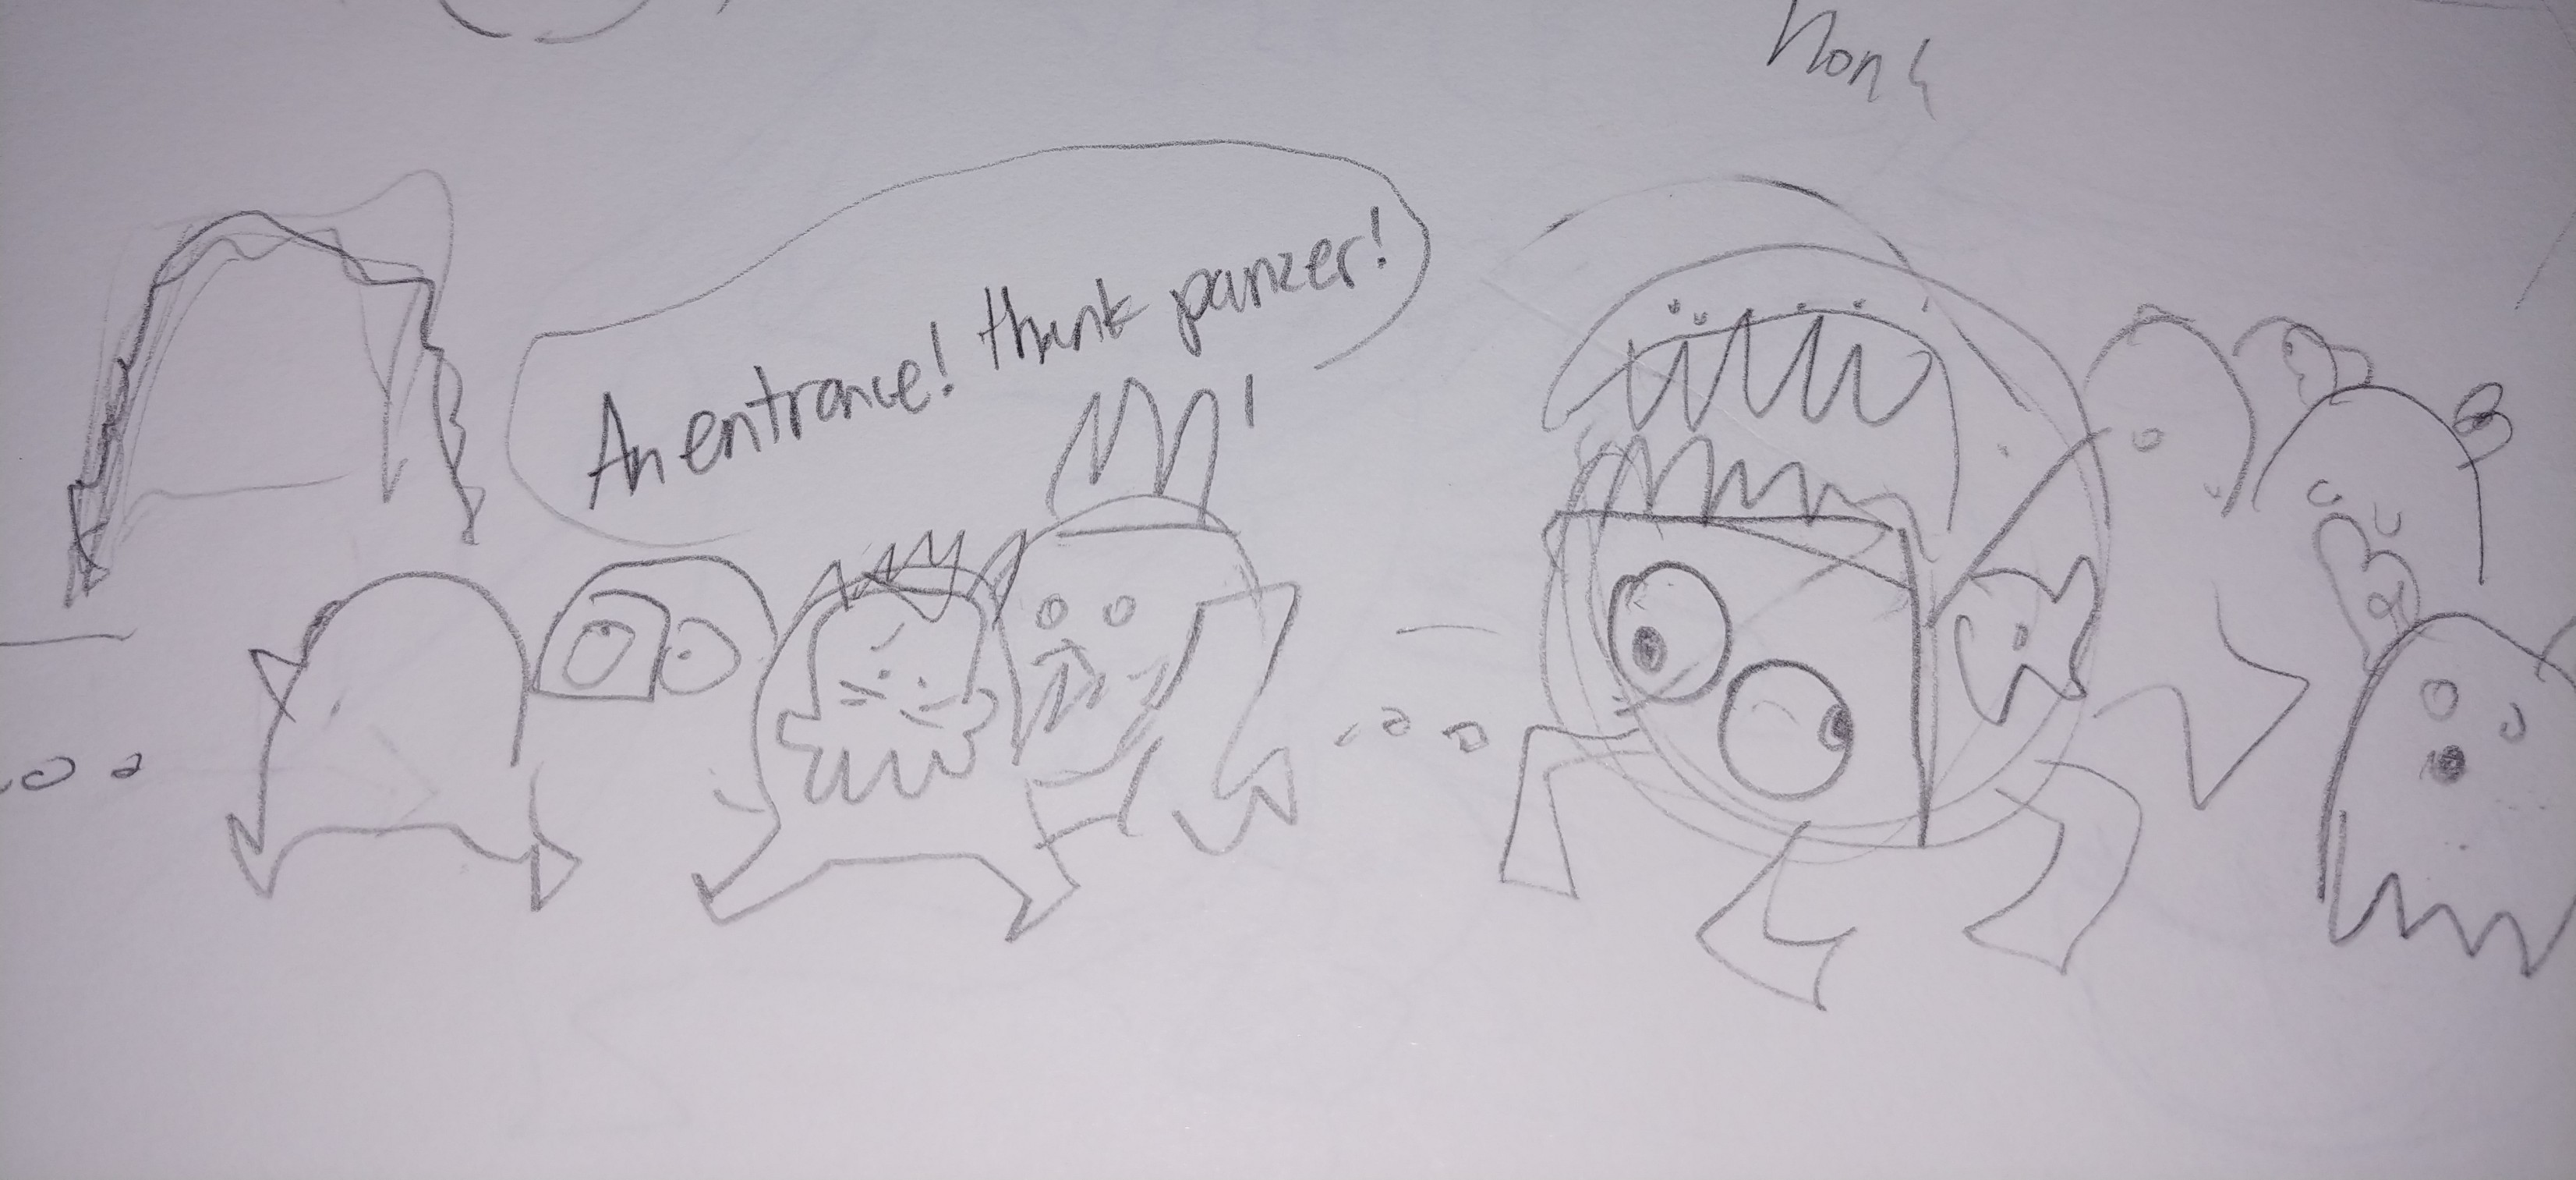 Honk
An entrance! thank panzer!